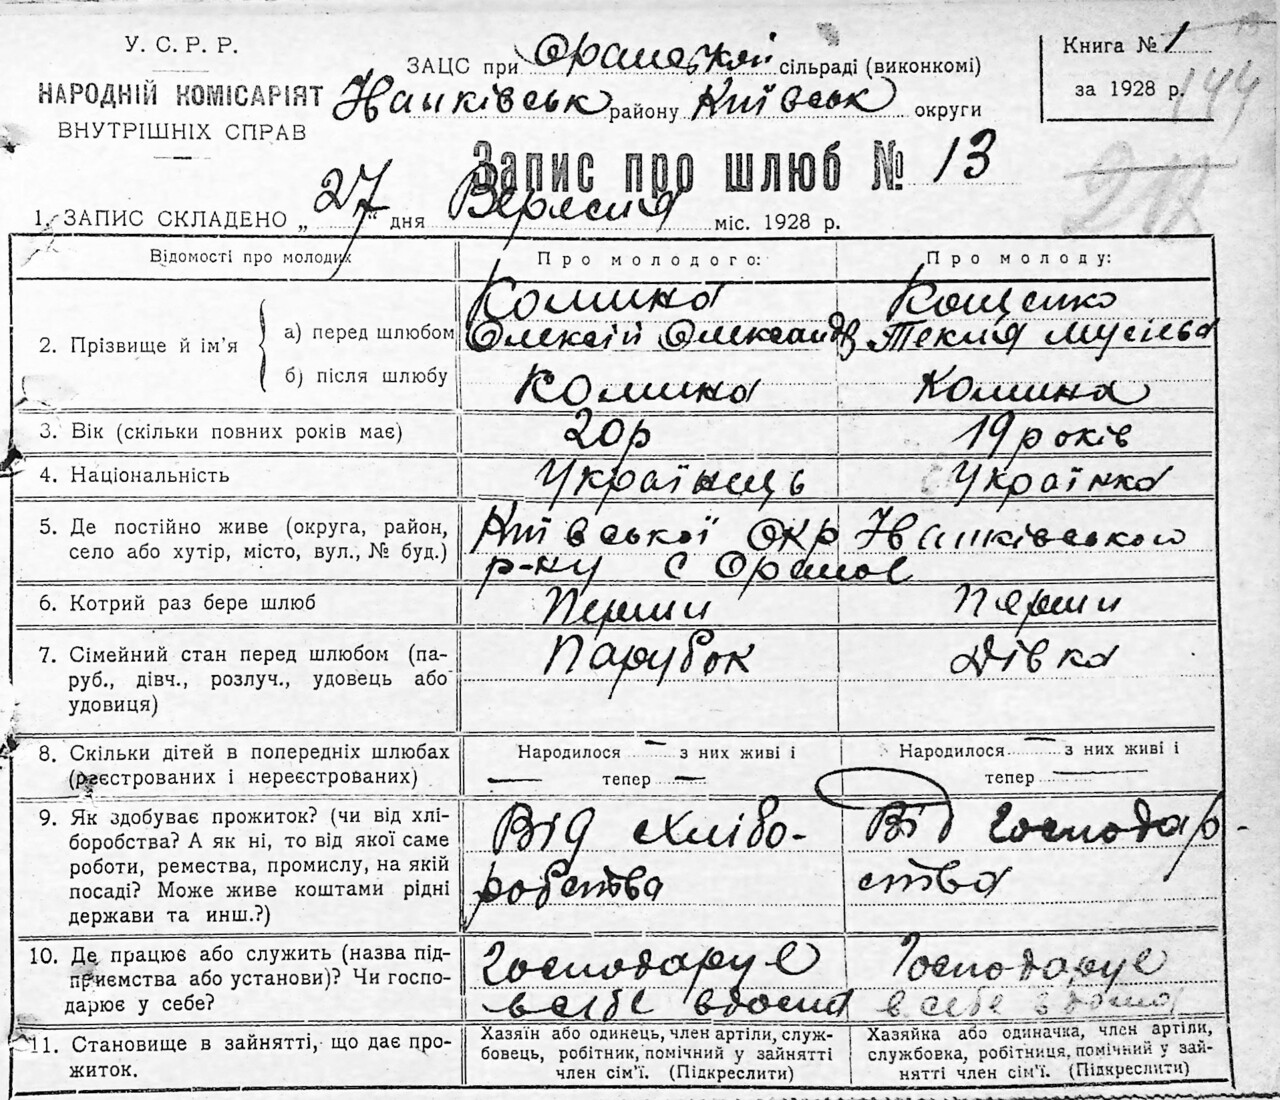 У. С. Р. Р.
НАРОДНІЙ КОМІСАРІЯТ
ВНУТРІШНІХ СПРАВ
ЗАЦС при Оранецкой сільраді (виконкомі)
району Київськ округи
Книга № 1
за 1928 р. 144
Запис про шлюб № 13
1. ЗАПИС СКЛАДЕНО „27" дня Вересня міс. 1928 р.
Відомості про молодих
Про молодого:
Про молоду:
2. Прізвище й ім'я
а) перед шлюбом
Комина
Олексій Олександ
Кощенко
Текля Мусієва
б) після шлюбу
Комина
Комина
3. Вік (скільки повних років має)
20р
19 років
4. Національність
Українець
Українка
5. Де постійно живе (округа, район,
село або хутір, місто, вул., № буд.)
Київської окр
р-ну с Оране
6. Котрий раз бере шлюб
Перши
Перши
7. Сімейний стан перед шлюбом (па-
руб., дівч., розлуч., удовець або
удовиця)
Парубок
Дівка
8. Скільки дітей в попередніх шлюбах
(реєстрованих і нереєстрованих)
Народилося — з них живі і
тепер —
Народилося — з них живі і
тепер —
9. Як здобуває прожиток? (чи від хлі-
боробства? А як ні, то від якої саме
роботи, ремества, промислу, на якій
посаді? Може живе коштами рідні
держави та инш.?)
Від хлібо-
робства
Від господар-
ства
10. Де працює або служить (назва під-
приємства або установи)? Чи госпо-
дарює у себе?
Господарує
в себе вдома
Господарує
в себе вдома
11. Становище в зайнятті, що дає про-
житок.
Хазяїн або одинець, член артіли, служ-
бовець, робітник, помічний у зайнятті
член сім'ї. (Підкреслити)
Хазяйка або одиначка, член артіли,
службовка, робітниця, помічний у зай-
нятті член сім'ї. (Підкреслити)